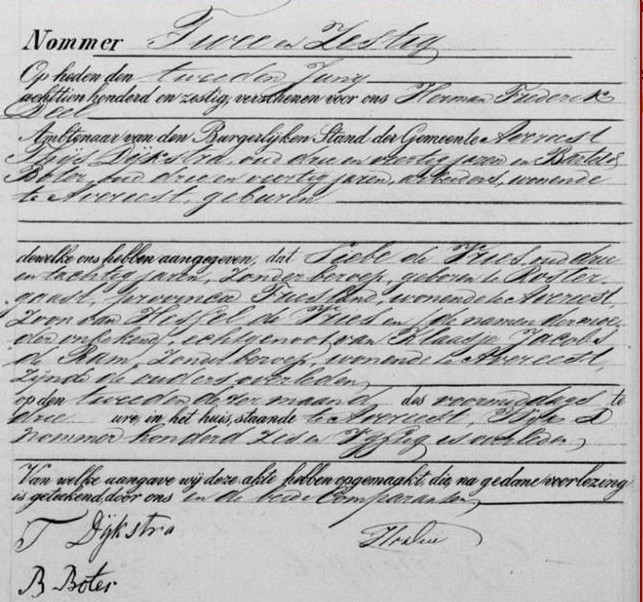 Nommer Twee en Zestig
Op heden den tweeden Juny
achttien honderd en zestig, verschenen voor ons Herman Frederik
Ambtenaar van den Burgerlijken Stand der Gemeente Avereest
Thijs Dijkstra, oud drie en veertig jaren en Barteld
Boter, oud drie en veertig jaren, arbeiders, wonende
te Avereest, geburen
dewelke ons hebben aangegeven, dat Siebe de Vries, oud drie
en tachtig jaren, zonder beroep, geboren te Rotster-
gaast, provincie Friesland, wonende te Avereest
Zoon van Hessel de Vries en (de namen der moe-
der onbekend), echtgenoot van Klaasje Jacobs
de Ram, zonder beroep, wonende te Avereest,
zijnde de ouders overleden,
op den tweeden dezer maand des voormiddags te
drie ure, in het huis, staande te Avereest, Wijk D
nommer honderd zes en Vijftig is overleden,
Van welke aangave wij deze akte hebben opgemaakt, die na gedane voorlezing
is geteekend door ons en de beide Comparanten,
T Dijkstra
B Boter